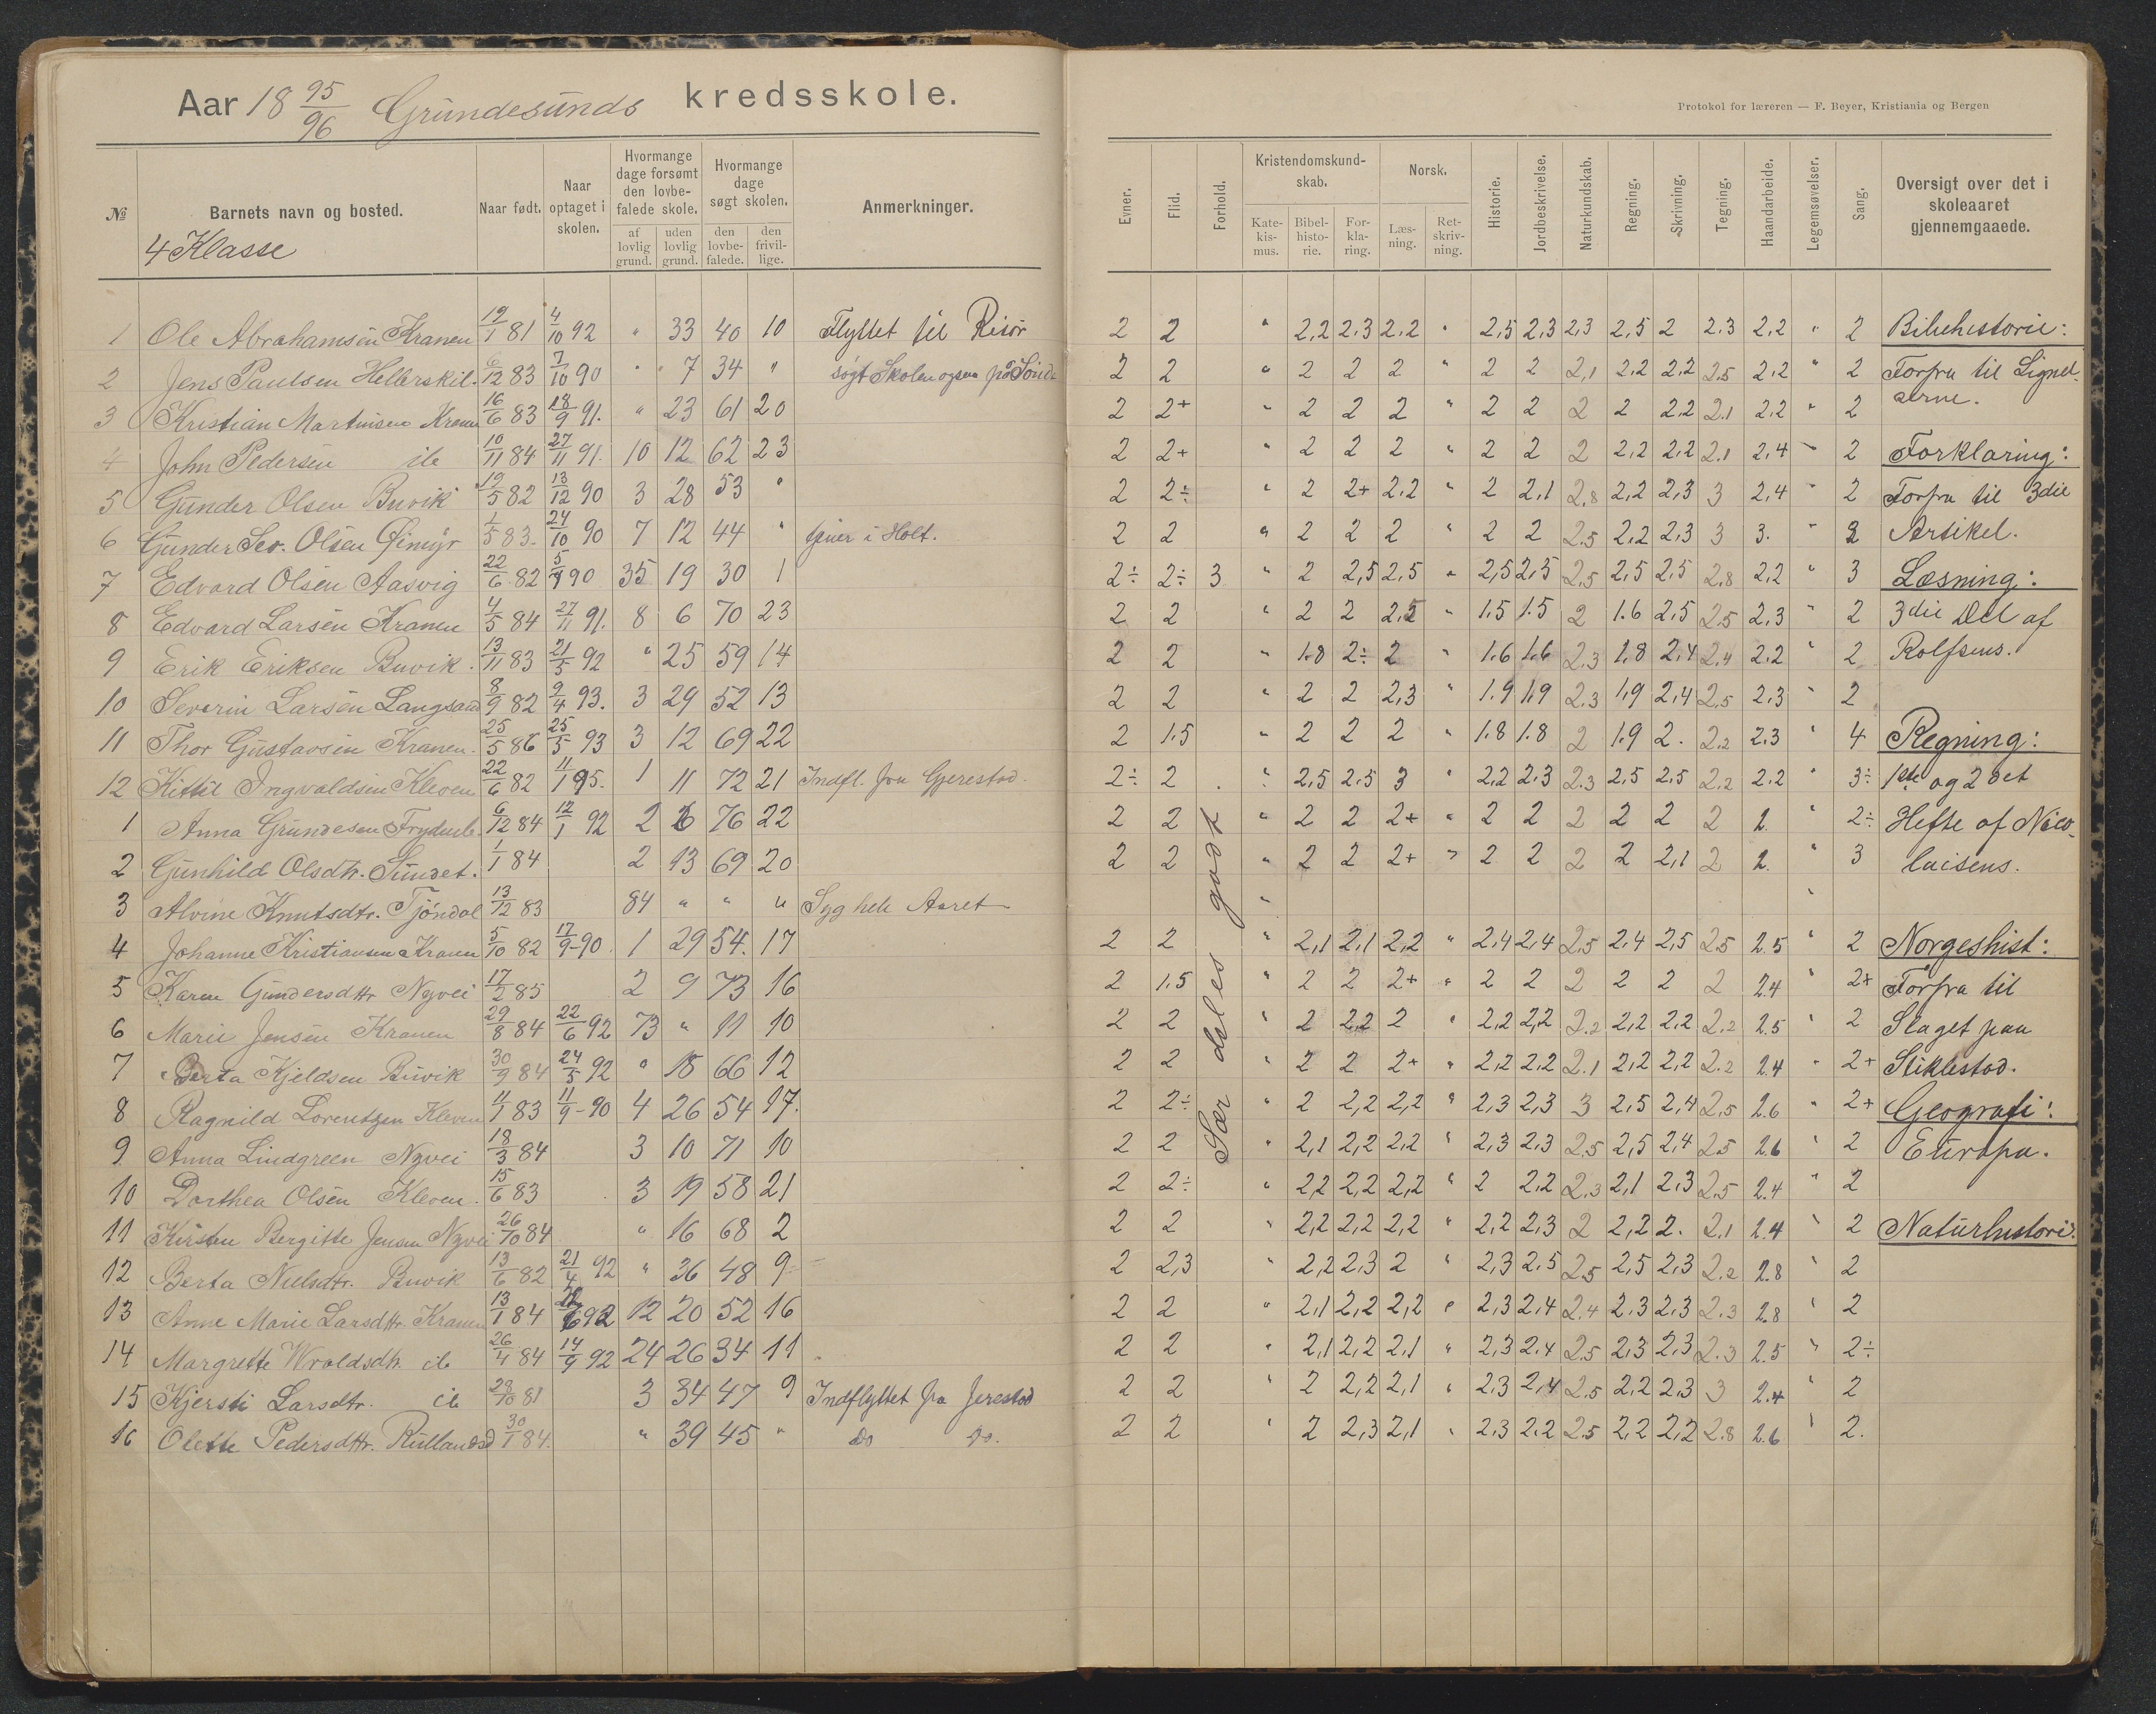 Aar 18 95/96 Gründesünds kredsskole.
№ Barnets navn og bosted. Naar født. Naar optaget i skolen. Hvormange dage forsømt den lovbefalede skole. af lovlig grund. uden lovlig grund. Hvormange dage søgt skolen. den lovbefalede. den frivillige. Anmerkninger.
4 Klasse
1 Ole Abrahamsen Kranen 19/1 81 4/10 92 " 33 40 10 Flyttet til Risør
2 Jens Paulsen Hellerskil. 6/12 83 7/10 90 " 7 34 " søgt Skolen ogsaa
3 Kristian Martinsen Kranen 16/6 83 18/9 91. " 23 61 20
4 John Pedersen ib 10/11 84 27/11 91. 10 12 62 23
5 Gunder Olsen Buvik 19/5 82 13/12 90 3 28 53 "
6 Gunder Sev. Olsen 1/5 83. 24/10 90 7 12 44 " tjener i Holt.
7 Edvard Olsen Aasvig 22/6 82 90 35 19 30 1
8 Edvard Larsen Kranen 4/5 84 27/11 91. 8 6 70 23
9 Erik Eriksen Buvik. 13/11 83 21/5 92 " 25 59 14
10 Severin Larsen Langsand 8/9 82 9/4 93. 3 29 52 13
11 Thor Güstavsen Kranen. 25/5 86 25/5 93 3 12 69 22
12 Kittil Ingvaldsen Kleven 22/6 82 11/1 95. 1 11 72 21 Indfl. fra Gjerestad.
1 Anna Grundesen 6/12 84 12/1 92 2 76 22
2 Gunhild Olsdtr. Sundet. 1/1 84 2 13 69 20
3 Alvine Knutsdtr. Tjøndal 13/12 83 84 " " " Syg hele Aaret
4 Johanne Kristiansen Kranen 5/10 82 17/9-90 1 29 54. 17
5 Karen Gundersdttr Nyvei 17/2 85 2 9 73 16
6 Marie Jensen Kranen 29/8 84 22/6 92 73 " 11 10
7 Berta Kjeldsen Buvik 30/9 84 24/5 92 " 18 66 12
8 Ragnild Lorentzen Kleven 11/1 83 11/9-90 4 26 54 17.
9 Anna Lindgreen Nyvei 18/3 84 3 10 71 10
10 Dorthea Olsen Kleven. 15/6 83 3 19 58 21
11 Kirsten Bergitte Jensen Nyvei 26/10 84 " 16 68 2
12 Berta Nielsdtr. Buvik 13/6 82 21/4 92 " 36 48 9
13 Anne Marie Larsdttr. Kranen 13/1 84 92 12 20 52 16
14 Margrette Wroldsdtr. ib 26/4 84 14/9 92 24 26 34 11
15 Kjersti Larsdtr. ib 29/10 81 3 34 47 9 Indflyttet fra Jerestad
16 Olette Pedersdttr. 30/1 84. " 39 45 " Do Do.
Protokol for læreren — F. Beyer, Kristiania og Bergen
Evner. Flid. Forhold. Kristendomskundskab. Katekismus. Bibelhistorie. Forklaring. Norsk. Læsning. Retskrivning. Historie. Jordbeskrivelse. Naturkundskab. Regning. Skrivning. Tegning. Haandarbeide. Legemsøvelser. Sang. Oversigt over det i skoleaaret gjennemgaaede.
Særdeles godt
2 2 " 2,2 2.3 2.2 " 2,5 2,3 2,3 2,5 2 2.3 2,2 " 2 Bibehistorie:
2 2 " 2 2 2 " 2 2 2,1 2,2 2,2 2.5 2,2 " 2 Forfra til Lignel-
2 2+ " 2 2 2 " 2 2 2 2 2,2 2.1 2,2 " 2 serne.
2 2+ " 2 2 2 " 2 2 2 2,2 2,2 2.1 2,4 " 2 Forklaring:
2 2÷ " 2 2+ 2,2 " 2 2,1 2.8 2,2 2,3 3 2,4 " 2 Forfra til 3die
2 2 " 2 2 2 " 2 2 2.5 2,2 2,3 3 3. " 2 Artikel.
2÷ 2÷ 3 " 2 2,5 2,5 " 2,5 2,5 2.5 2,5 2,5 2.8 2,2 " 3 Læsning:
2 2 " 2 2 2,5 " 1.5 1.5 2 1.6 2,5 2.5 2,3 " 2 3die Del af
2 2 " 1.8 2÷ 2 " 1.6 1.6 2.3 1.8 2,4 2.4 2,2 " 2 Rolfsens.
2 2 " 2 2 2,3 " 1.9 1.9 2.3 1,9 2,4 2.5 2,3 " 2
2 1.5 " 2 2 2 " 1.8 1.8 2 1.9 2. 2.2 2,3 " 4 Regning:
2÷ 2 " 2,5 2,5 3 " 2,2 2,3 2.3 2,5 2,5 2.2 2,2 " 3÷ 1ste og 2det
2 2 " 2 2 2+ " 2 2 2 2 2 2 2. " 2÷ Hefte af Nico-
2 2 " 2 2 2+ " 2 2 2 2 2,1 2 2. " 3 laisens.
" "
2 2 " 2,1 2,1 2,2 " 2,4 2,4 2.5 2,4 2,5 2.5 2.5 " 2 Norgeshist:
2 1,5 " 2 2 2+ " 2 2 2 2 2 2 2.4 " 2+ Forfra til
2 2 " 2 2,2 2 " 2,2 2,2 2.2 2,2 2,2 2.2 2.5 " 2 Slaget paa
2 2 " 2 2 2+ " 2,2 2,2 2.1 2,2 2,2 2.2 2.4 " 2+ Stiklestad.
2 2÷ " 2 2,2 2,2 " 2,3 2,3 3 2,5 2,4 2.5 2.6 " 2+ Geografi:
2 2 " 2,1 2,2 2,2 " 2,3 2,3 2.5 2,5 2,4 2.5 2.6 " 2 Europa.
2 2÷ " 2,2 2,2 2,2 " 2 2,2 2.3 2,1 2,3 2.5 2.4 " 2
2 2 " 2,2 2,2 2,2 " 2,2 2,3 2 2,2 2. 2.1 2.4 " 2 Naturhistorie.
2 2,3 " 2,2 2,3 2 " 2,3 2.5 2.5 2,5 2,3 2.2 2.8 " 2
2 2 " 2,1 2,2 2,2 " 2,3 2,4 2.4 2,3 2,3 2.3 2.8 " 2
2 2 " 2,1 2,2 2,1 " 2,3 2.4 2.5 2,3 2,3 2.3 2.5 " 2÷
2 2 " 2 2,2 2,1 " 2,3 2,4 2.5 2,2 2,3 3 2.4 " 2
2 2 " 2 2,3 2,1 " 2,3 2,2 2.5 2,2 2,2 2.8 2.6 " 2.